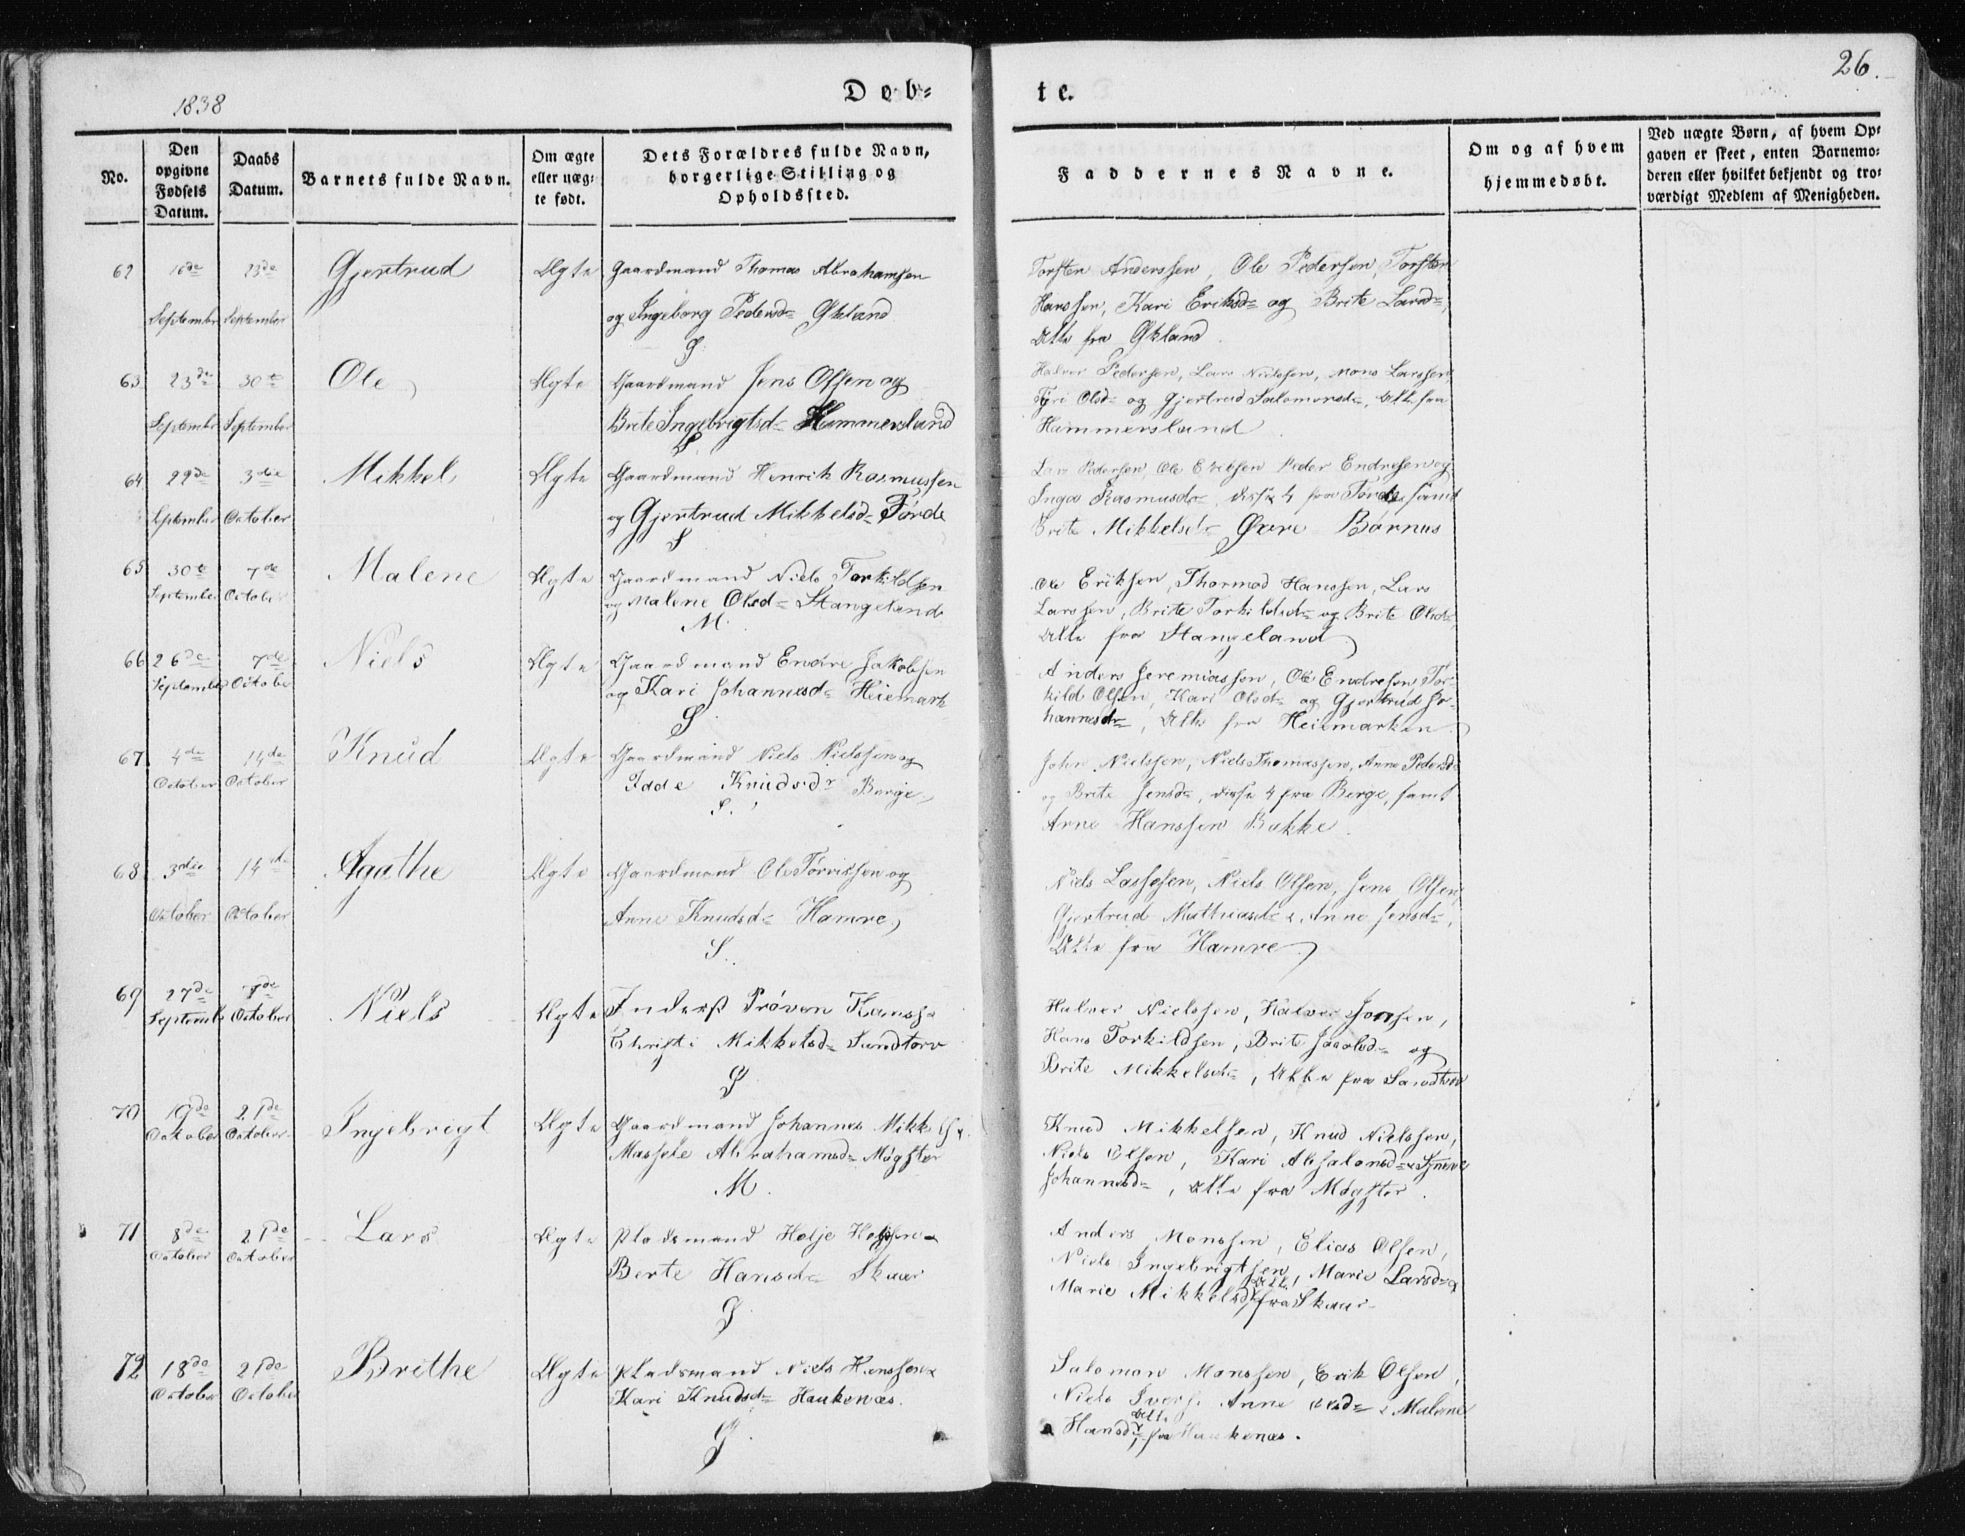 1838
Døb=
te.
26.
No.
Den opgivne Fødsels Datum.
Daabs Datum.
Barnets fulde Navn.
Om ægte eller uæg= te født.
Dets Forældres fulde Navn, borgerlige Stilling og Opholdssted.
Faddernes Navne.
Om og af hvem hjemmedøbt.
Ved uægte Børn, af hvem Op= gaven er skeet, enten Barnemo= deren eller hvilket bekjendt og tro= værdigt Medlem af Menigheden.
62 16de September 23de September Gjertrud Ægte Gaardmand Thomas Abrahamsen
og Ingeborg Pedersd= Økland
S.
Torsten Anderssen, Ole Pedersen, Torsten
Hanssen, Kari Eriksd= og Brite Larsd=,
Alle fra Økland.
63 23de September 30te September Ole Ægte Gaardmand Jens Olsen og
Brite Ingebrigtsd= Hammersland
S.
Halvor Pedersen, Lars Nielssen, Mons Larssen,
Olsd= og Gjertrud Salomonsd=, Alle fra
Hammersland.
64 29de September 3die October Mikkel Ægte Gaardmand Henrik Rasmussen
og Gjertrud Mikkelsd= Førde
S
Lars Pedersen, Ole Eriksen Peder Endresen og
Inga Rasmusd=, disse 4 fra Førde, samt
Brite Mikkelsd= Øvre Børnæs
65 30te September 7de October Malene Ægte Gaardmand Niels Torkildsen
og Malene Olsd= Stangeland
M.
Ole Eriksen, Thormod Hanssen, Lars
Larssen, Brite Torkildsd= og Brite Olsd=,
Alle fra Stangeland
66 26de September 7de October Niels Ægte Gaardmand Endre Jakobsen
og Kari Johannesd= Heiemark
S.
Anders Jeremiassen, Ole Endresen, Tor-
kild Olsen, Kari Olsd= og Gjertrud Jo-
hannesd=, Alle fra Heiemarken.
67. 4de October 14de October Knud Ægte Gaardmand Niels Nielssen og
Knudsdr Berge,
S.
John Nielssen, Niels Thomassen, Anne Pedersd=
og Brite Jensd=, disse 4 fra Berge, samt
Arne Hanssen Bakke.
68 3die October 14de October Agathe Ægte Gaardmand Ole Tørrissen og
Anne Knudsd= Hamre,
S.
Niels Lassesen, Niels Olsen, Jens Olsen,
Gjertrud Mathiasd= & Anne Jensd=,
Alle fra Hamre
69 27de September 7de October Niels Ægte Prøven
Christi Mikkelsd= Sundtorv
S.
Halvor Nielssen, Halvor Jonsen,
Hans Torkildsen, Brite og
Brite Mikkelsd=, Alle fra Sandtorv
70 19de October 21de October Ingebrigt Ægte Gaardmand Johannes Mikkels &
Massele Abrahamsd= Møgster
M.
Knud Mikkelsen, Knud Nielssen,
Niels Olsen, Kari Absalonsd= & Synneve
Johannesd=, Alle fra Møgster.
71 8de October 21de October Lars Ægte Pladsmand Helje &
Berte Hansd= Skaar
S
Anders Monssen, Elias Olsen,
Niels Ingebrigtsen, Marie Larsd= &
Marie Mikkelsd= Alle fra Skaar.
72 18de October 21de October Brithe Ægte Pladsmand Niels Hanssen &
Kari Knudsd= Haukenæs.
S.
Salomon Monssen, Erik Olsen,
Niels Ivers. Anne Olsd= & Malene
Hansdr, Alle fra Haukenæs.